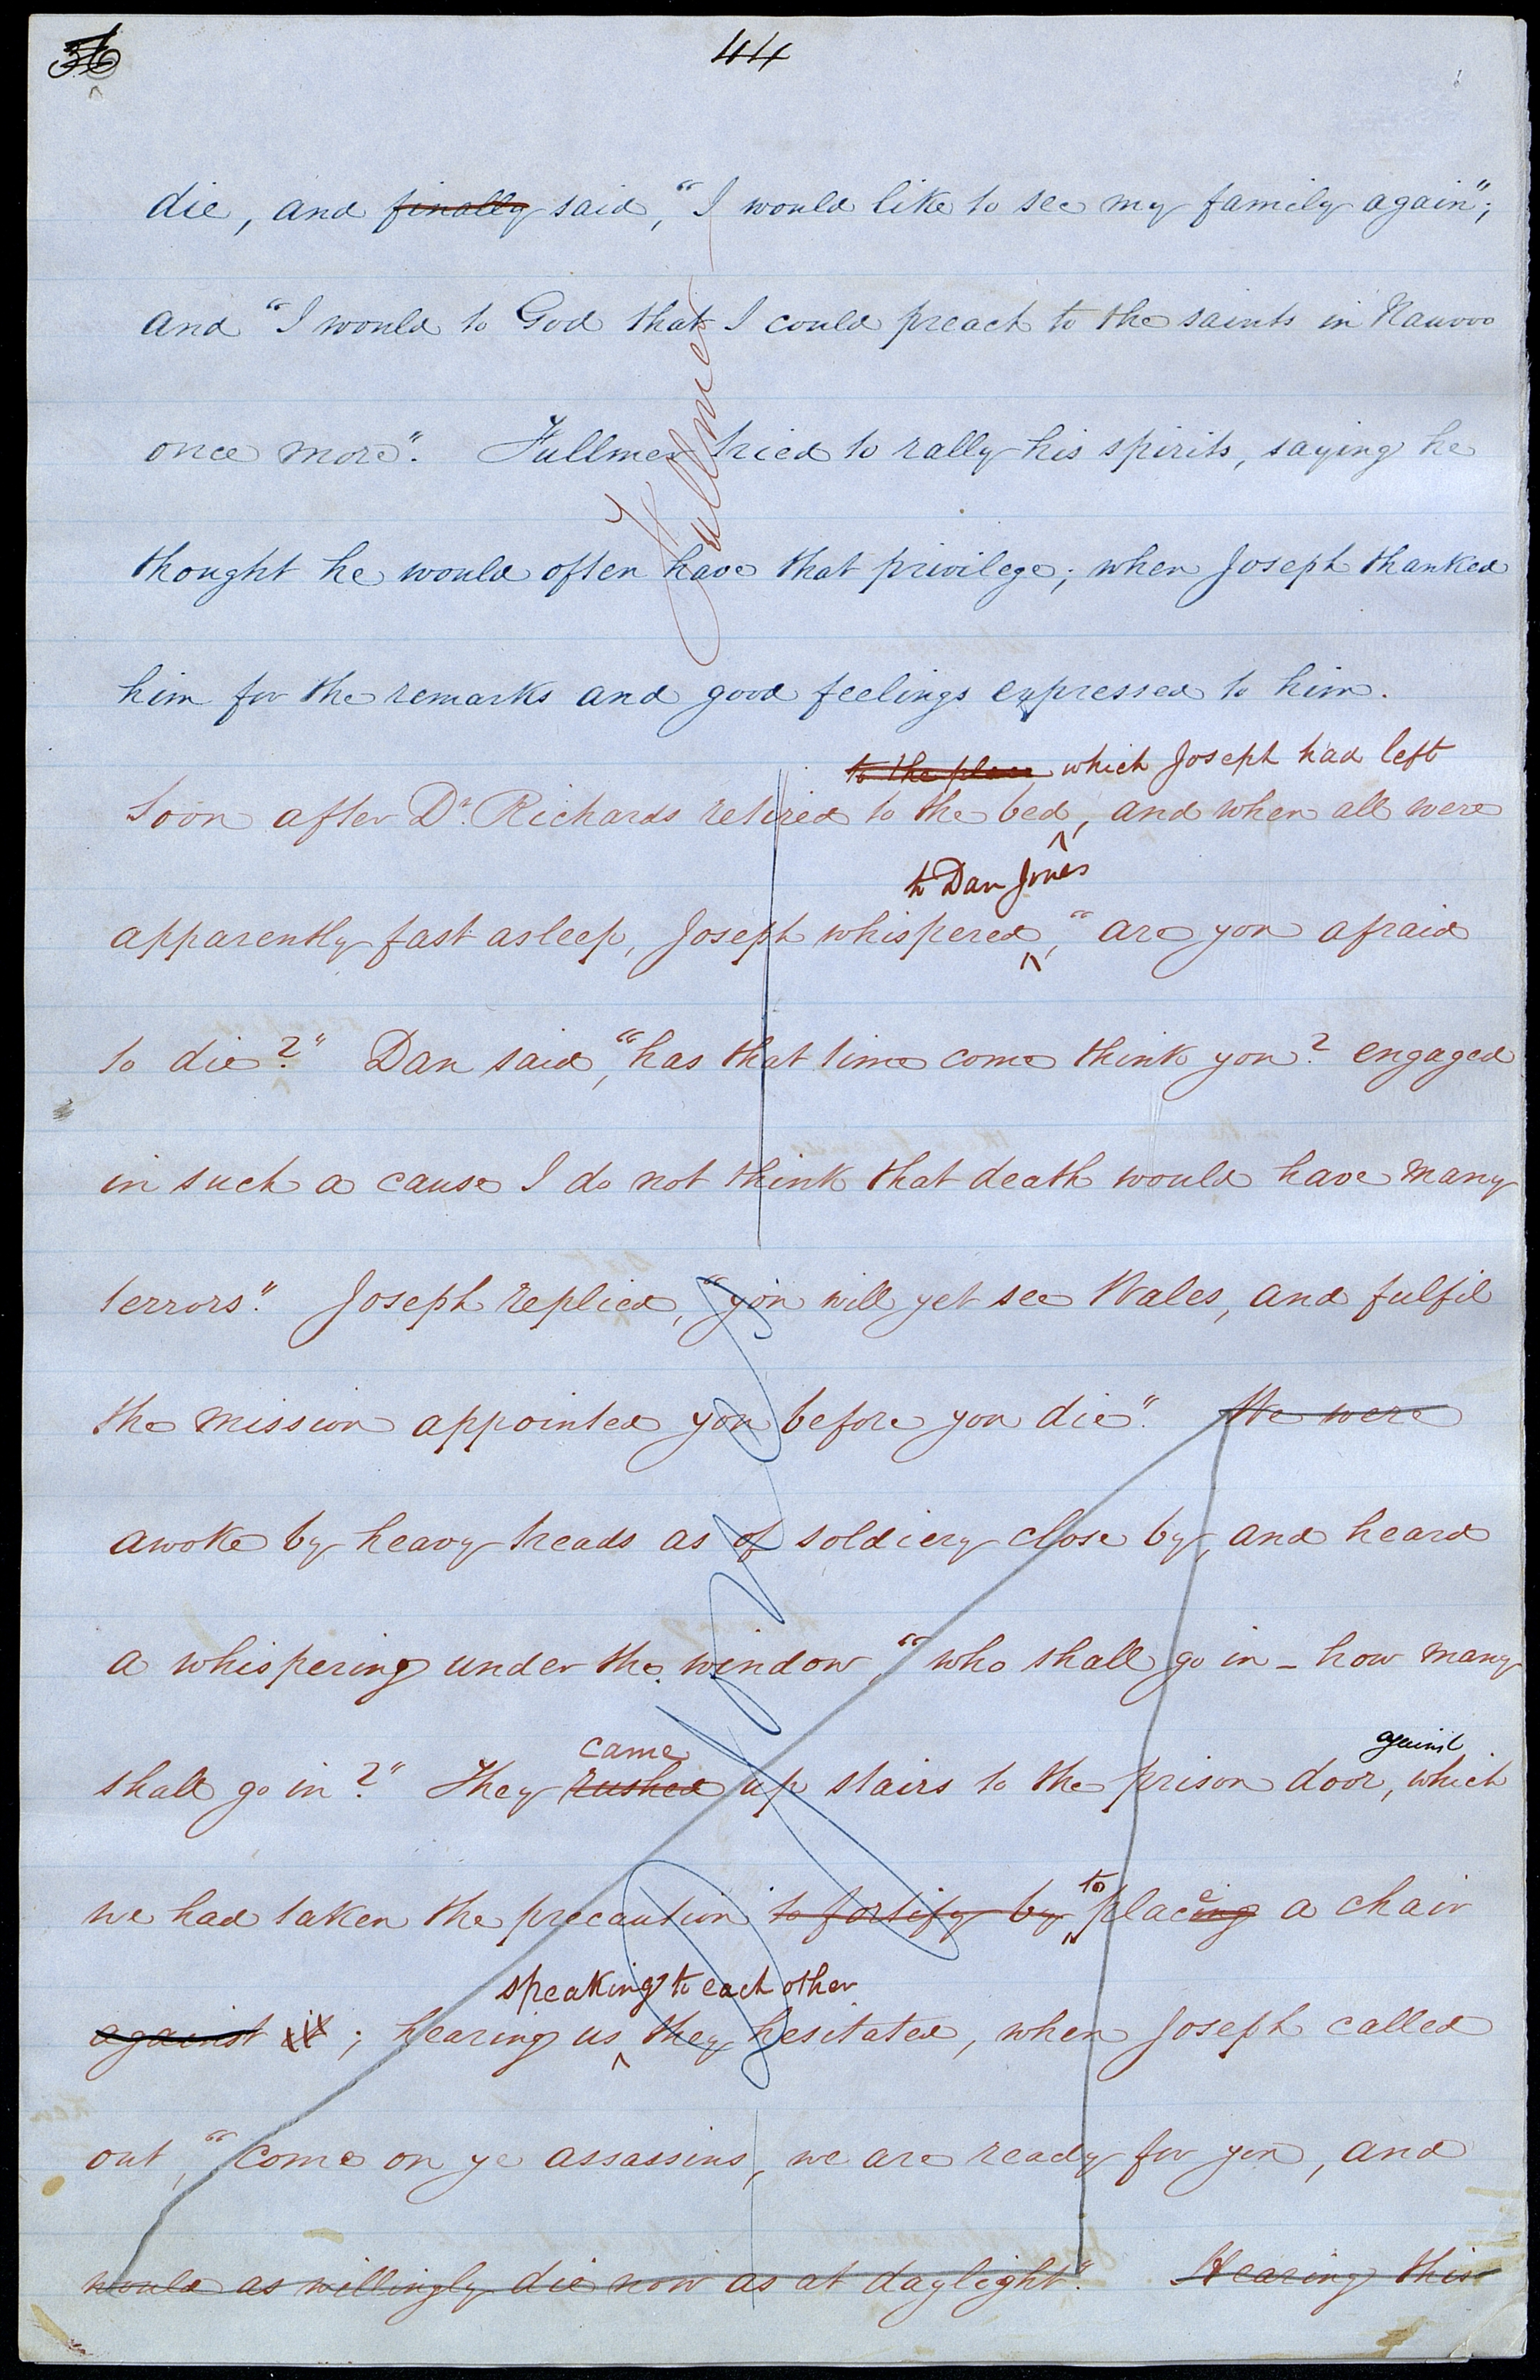 36
44
die, and finally said, "I would like to see my family again";
and "I would to God that I could preach to the saints in Nauvoo
once more". Fullmer tried to rally his spirits, saying he
thought he would often have that privilege; when Joseph thanked
him for the remarks and good feelings expressed to him.
Fullmer
to the place which Joseph had left
Soon after Dr. Richards retired to the bed, and when all were
to Dan Jones
apparently fast asleep, Joseph whispered, "are you afraid
to die?" Dan said, "has that time come think you? engaged
in such a cause I do not think that death would have many
terrors". Joseph replied, "you will yet see Wales, and fulfil
the mission appointed you before you die". We were
awoke by heavy treads as of soldiery close by, and heard
a whispering under the window, "who shall go in - how many
came against
shall go in?" They rushed up stairs to the prison door, which
to e
we had taken the precaution to fortify by placing a chair
speaking to each other
against it; hearing us they hesitated, when Joseph called
out, "come on ye assassins, we are ready for you, and
would as willingly die now as at daylight". Hearing this
D Jones